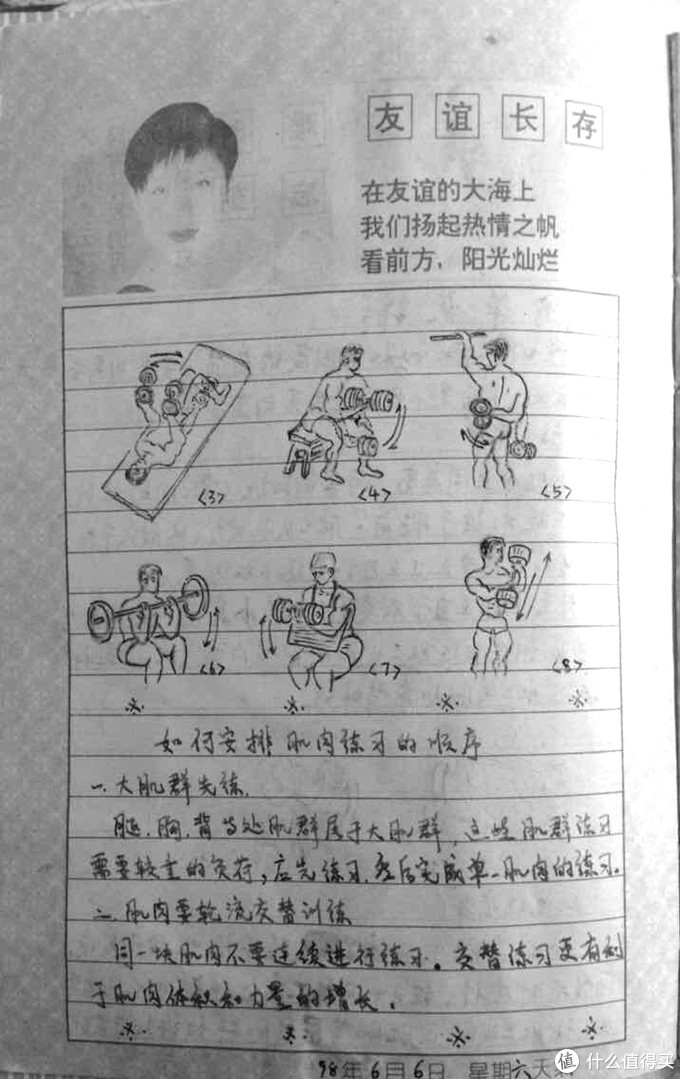 友谊长存
在友谊的大海上
我们扬起热情之帆
看前方，阳光灿烂
<3>
<4>
<5>
<6>
<7>
<8>
如何安排肌肉练习的顺序
一、大肌群先练.
腿、胸、背等处肌群属于大肌群，这些肌群练习
需要较重的负荷，应先练习.然后完成单一肌肉的练习。
二.肌肉要轮流交替训练
同一块肌肉不要连续进行练习。交替练习更有利
于肌肉体积和力量的增长.
98年6月6日 星期六 天
值 什么值得买